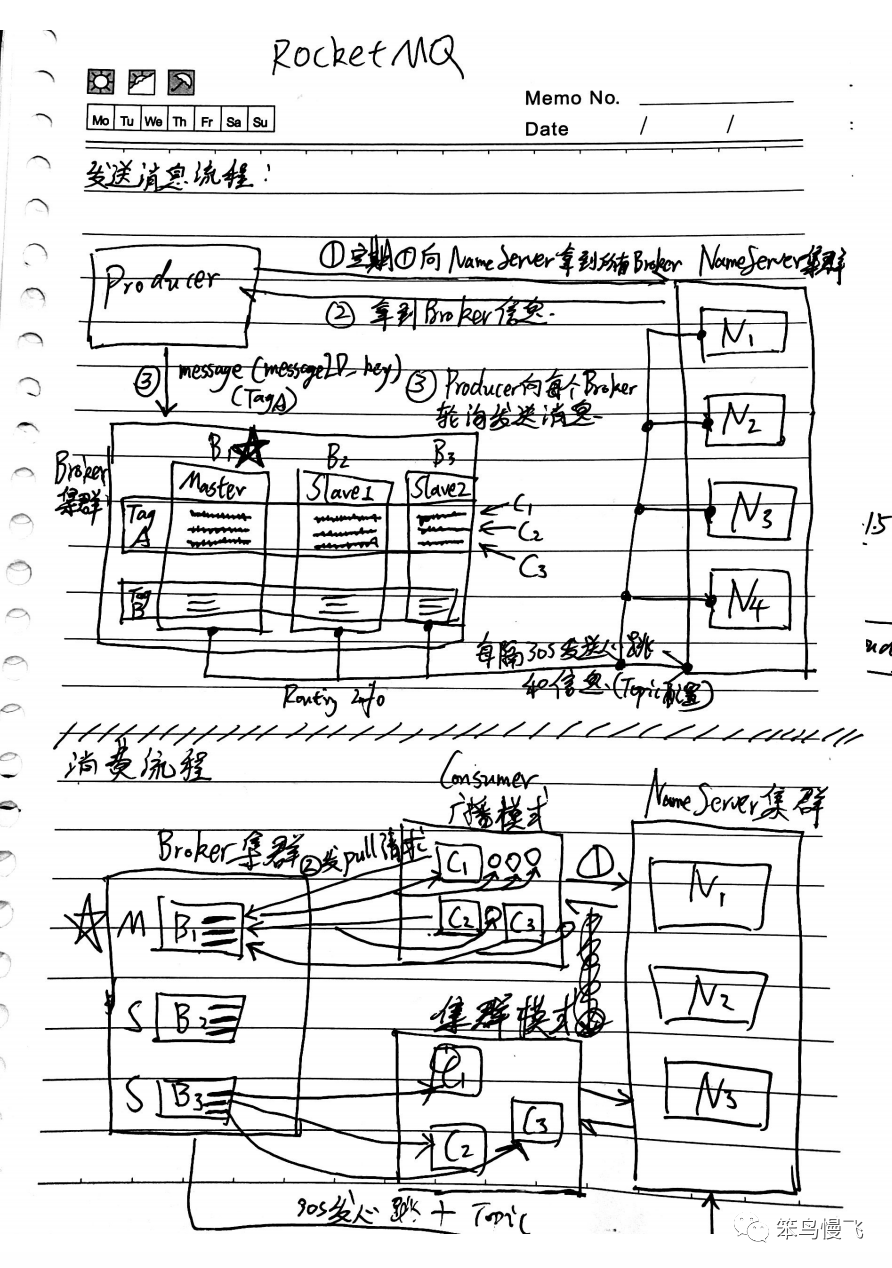 RocketMQ
Memo No.
Mo Tu We Th Fr Sa Su
Date / /
发送消息流程:
①定期①向NameServer拿到所有Broker
NameServer集群
Producer
②拿到Broker信息.
N1
③ message (messageID_key)
(TagA)
③Producer向每个Broker
轮询发送消息.
N2
B1 B2 B3
Broker
集群
Master Slave1 Slave2
Tag
A
C1
C2
C3
N3
1.5
Tag
B
N4
每隔30s发送心跳
和信息.(Topic配置)
Routing Info
消费流程
Consumer
广播模式
NameServer集群
Broker集群
②发pull请求
C1
①
N1
M B1
C2 C3
S B2
集群模式
N2
C1
S B3
N3
C3
C2
30s发心跳 + Topic
笨鸟慢飞